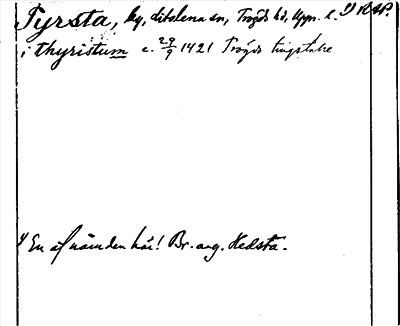 Tyrsta, by, Litslena sn, Trögds hd, Uppl. l. 1) RAP.
i thyristum c. 29/9 1421 Trögds tingställe
1) En af nämden här! Br. ang. Hedsta.